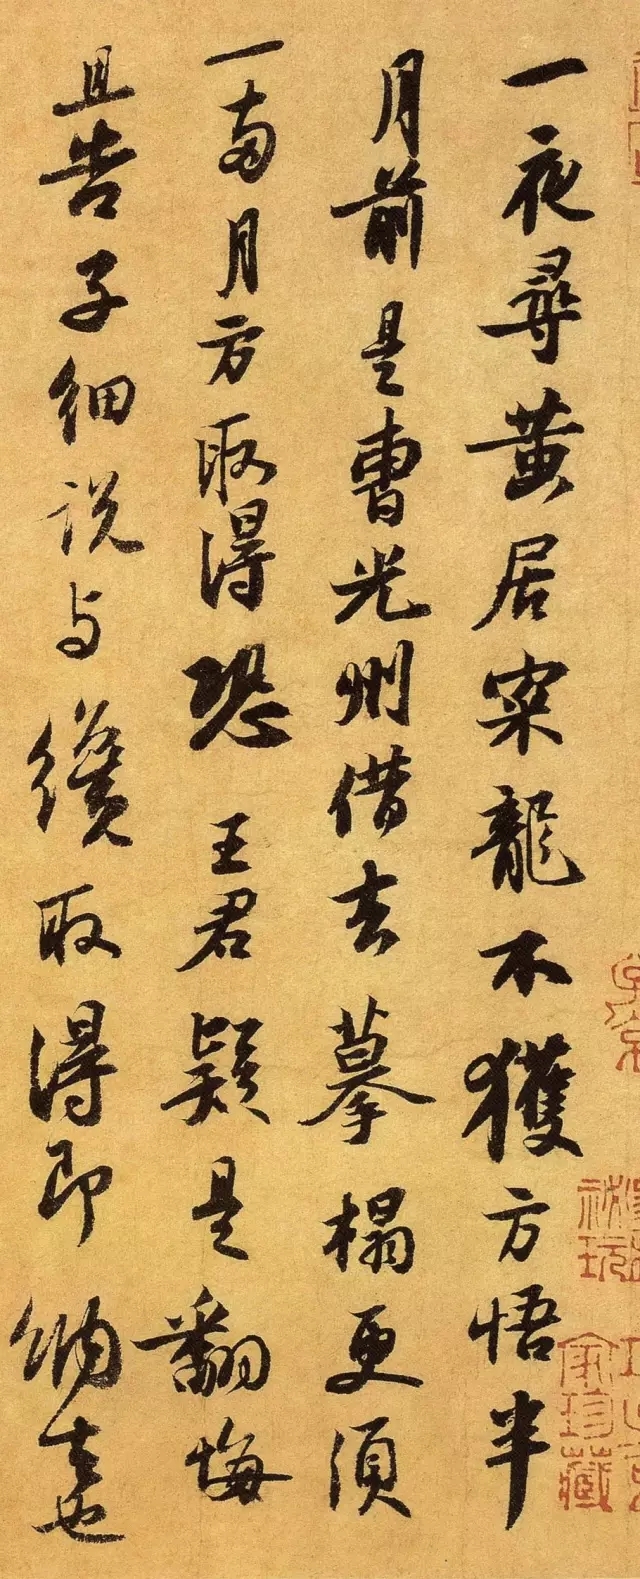 一夜尋黃居寀龍不獲方悟半
月前是曹光州借去摹榻更須
一兩月方取得恐王君疑是翻悔
且告子細說與纔取得即納去也